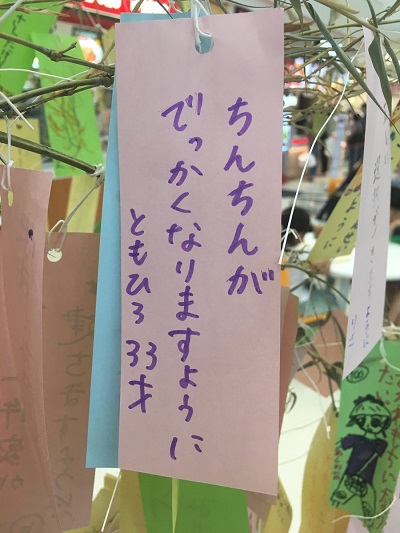 ちんちんが
でっかくなりますように
ともひろ 33才